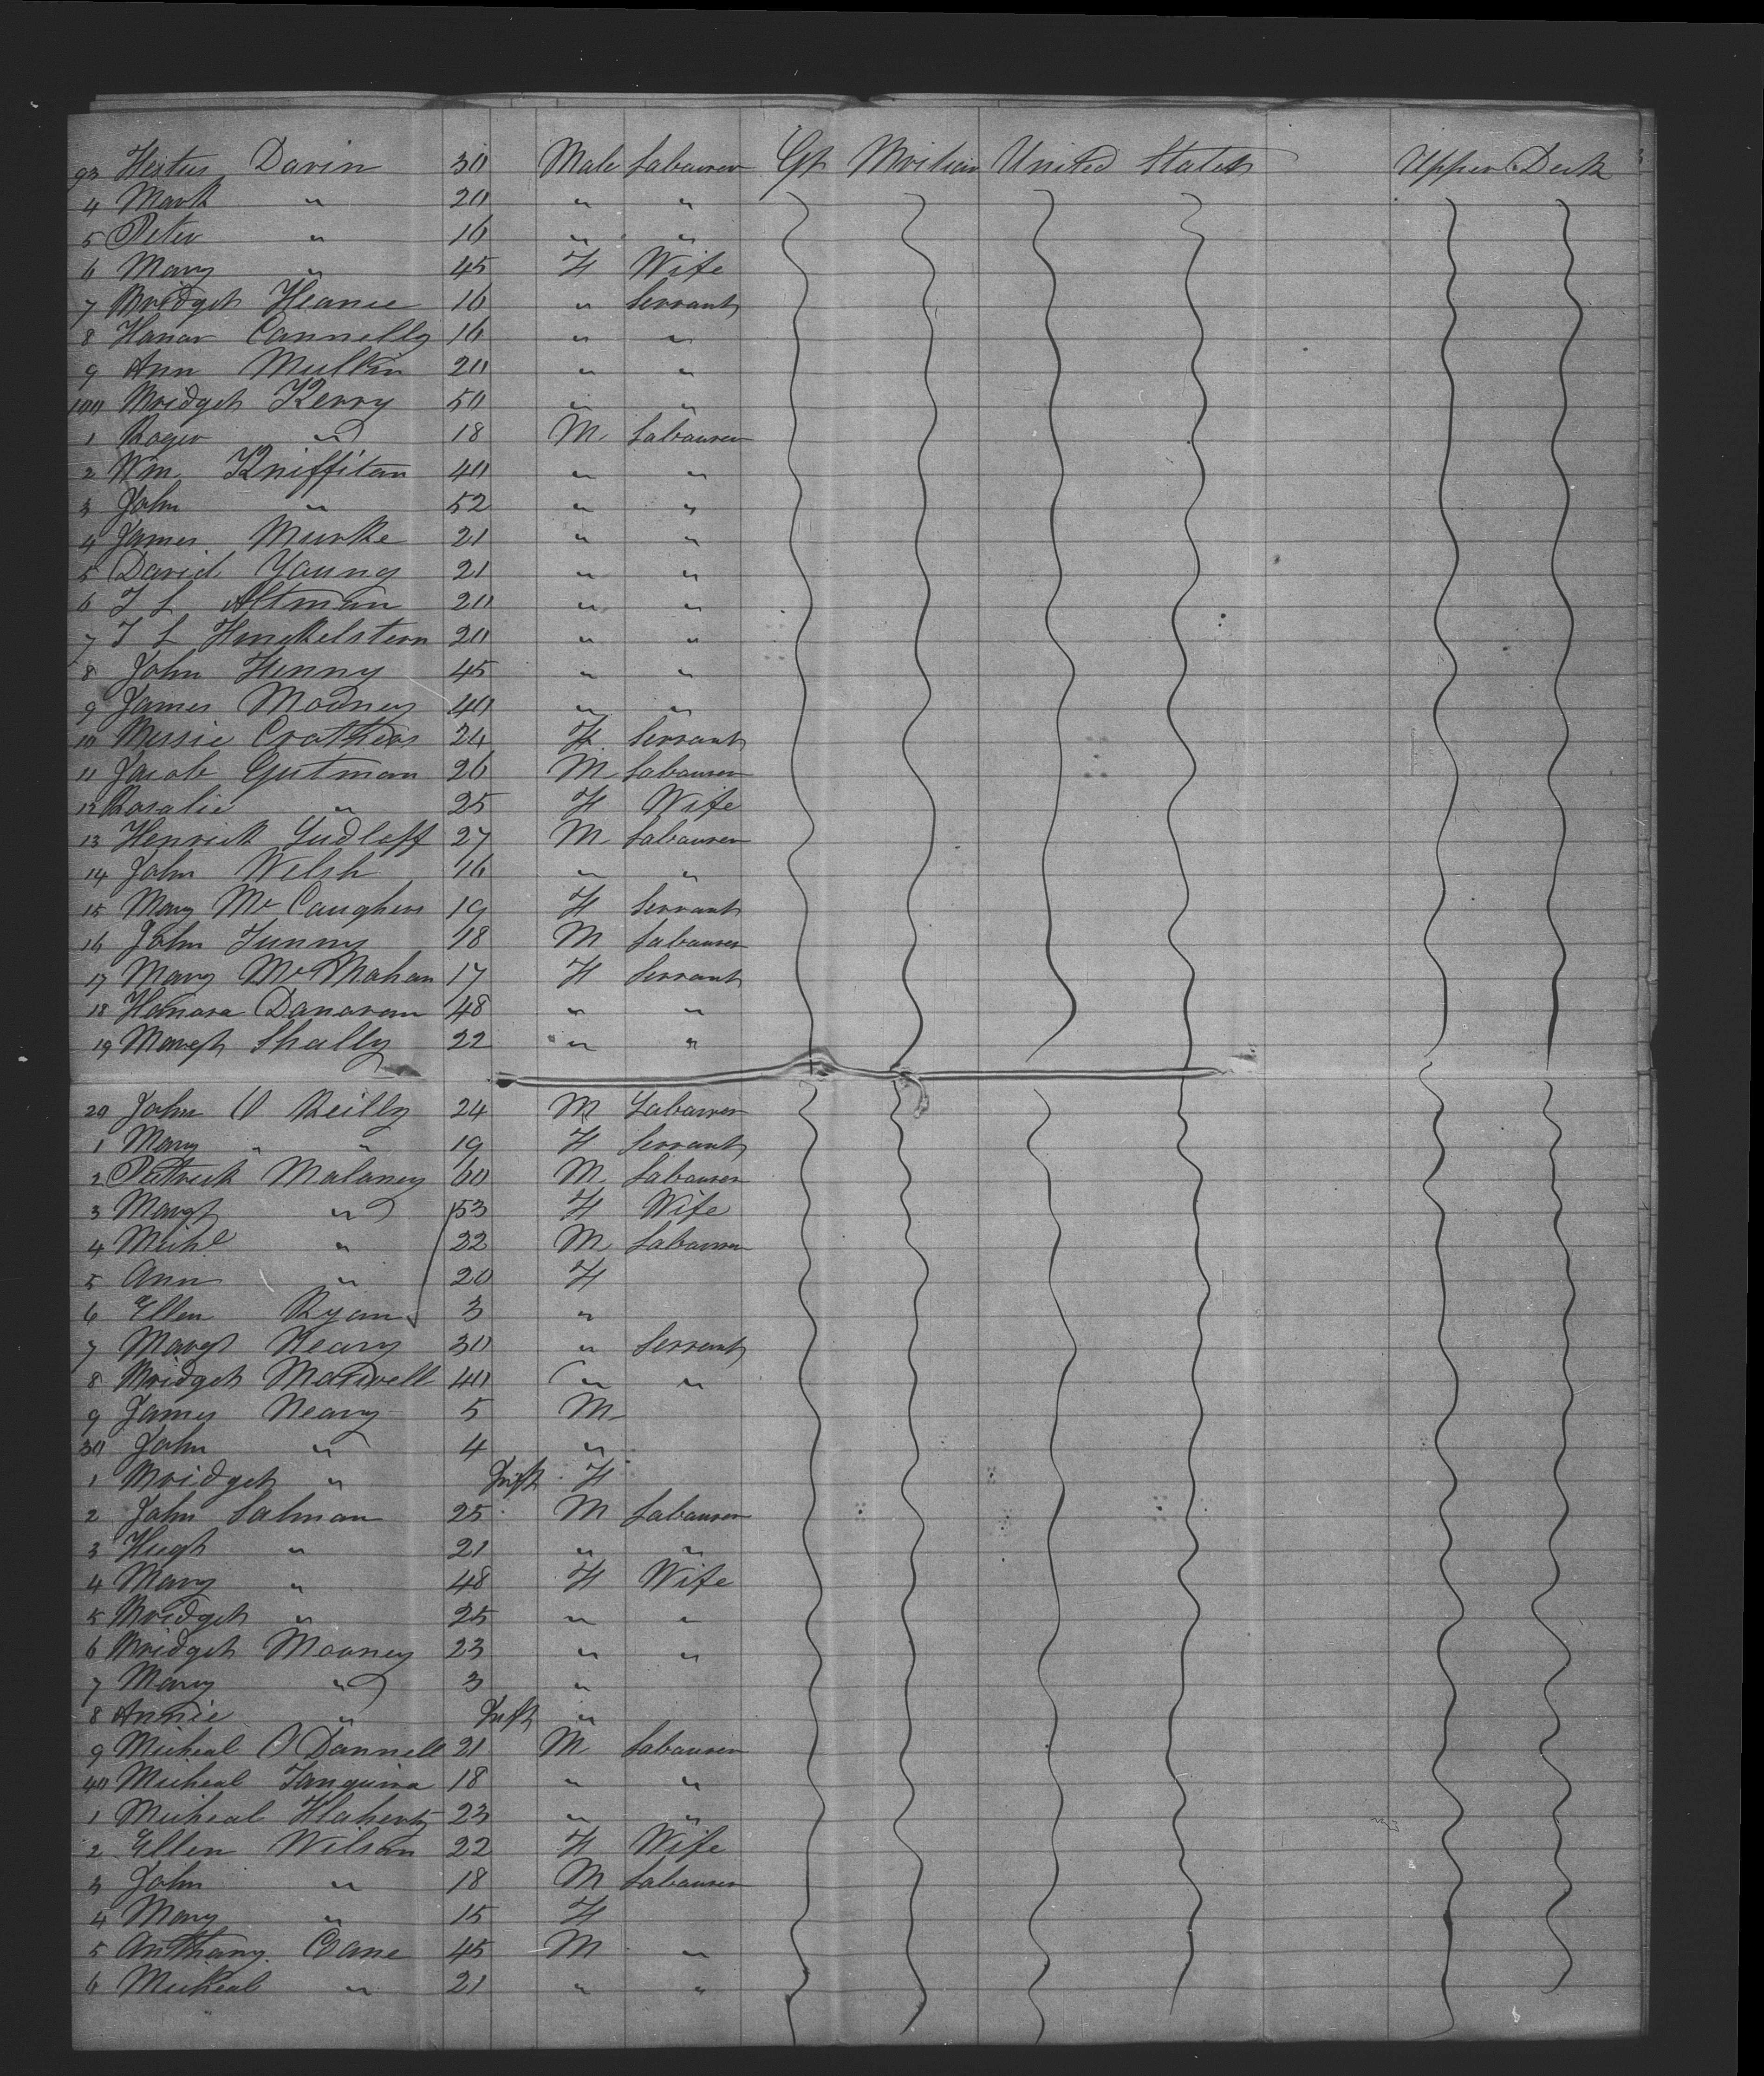 93 Festus Davin 30 Male Labourer Gt Britian United States Upper Deck
4 Mark " 20 " "
5 Peter " 16 " "
6 Mary " 45 F Wife
7 Bridget Heanee 16 " Servant
8 Honor Connelly 16 " "
9 Ann Mulkin 20 " "
100 Bridget Kerry 50 " "
1 Roger " 18 M Labourer
2 Wm Kniffiton 40 " "
3 John " 52 " "
4 James Burke 21 " "
5 David Young 21 " "
6 T L Altman 20 " "
7 T L 20 " "
8 John Henny 45 " "
9 James Mooney 40 " "
10 Bessie Crothers 24 F Servant
11 Jacob Gutman 26 M Labourer
12 Rosalie " 25 F Wife
13 Henrick Ludloff 27 M Labourer
14 John Welsh 16 " "
15 Mary McCaughen 19 F Servant
16 John Tunny 18 M Labourer
17 Mary McMahon 17 F Servant
18 Honora Donovan 48 " "
19 Margt Shally 22 " "
20 John O Reilly 24 M Labourer
1 Mary " " 19 F Servant
2 Patrick Maloney 60 M Labourer
3 Margt " 53 F Wife
4 Michl " 22 M Labourer
5 Ann " 20 F
6 Ellen Ryan 3 "
7 Margt Neary 30 " Servant
8 Bridget Maxwell 40 " "
9 James Neary 5 M
30 John " 4 "
1 Bridget " Inft F
2 John Salmon 25 M Labourer
3 Hugh " 21 " "
4 Mary " 48 F Wife
5 Bridget " 25 " "
6 Bridget Mooney 23 " "
7 Mary " 3 "
8 Annie " Inft "
9 Micheal O Donnell 21 M Labourer
40 Micheal 18 " "
1 Micheal Flaherty 23 " "
2 Ellen Wilson 22 F Wife
3 John " 18 M Labourer
4 Mary " 15 F
5 Anthony Cane 45 M "
6 Micheal " 21 " "